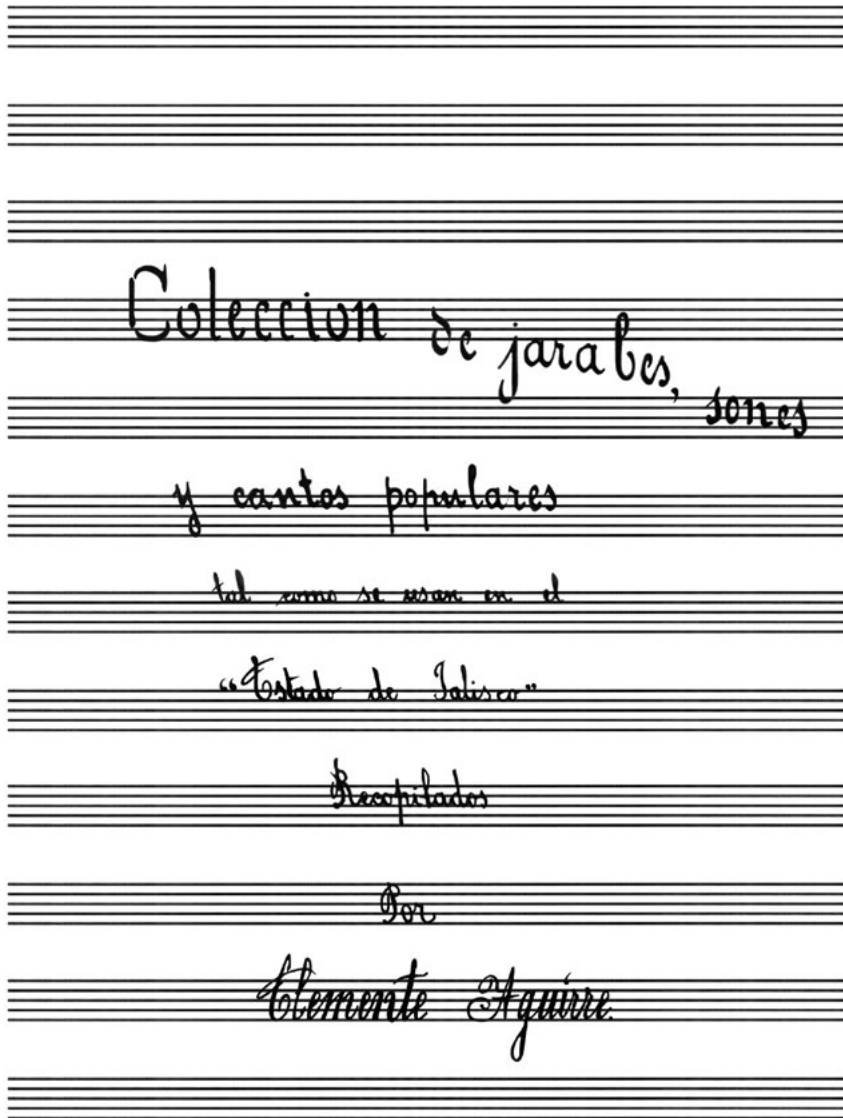 Coleccion de jarabes, sones
y cantos populares
tal como se usan en el
“Estado de Jalisco”
Recopilados
Por
Clemente Aguirre.